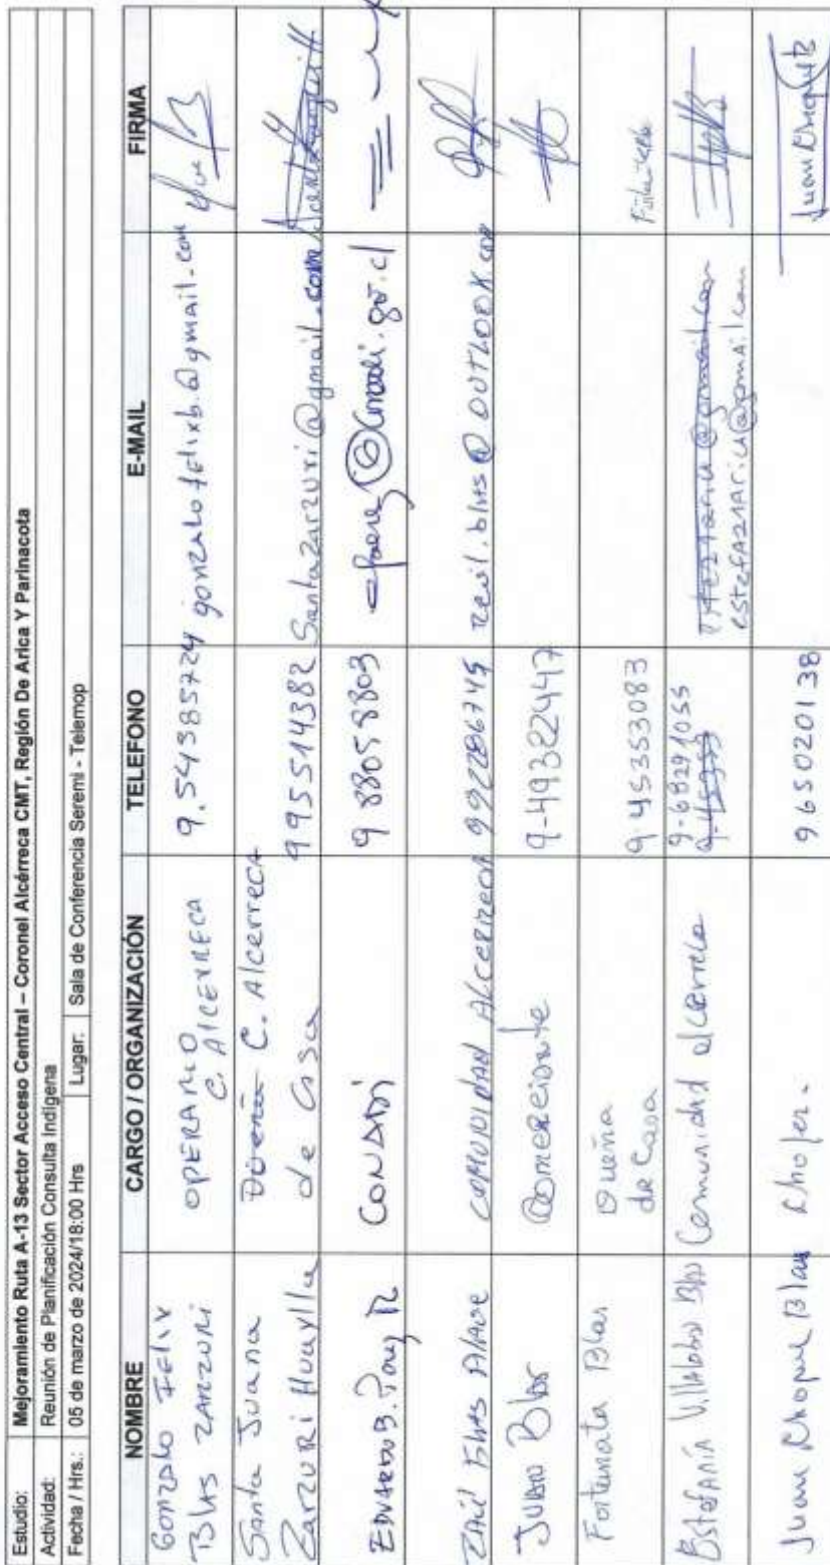 Estudio: Mejoramiento Ruta A-13 Sector Acceso Central – Coronel Alcérreca CMT, Región De Arica Y Parinacota
Actividad: Reunión de Planificación Consulta Indígena
Fecha / Hrs.: 05 de marzo de 2024/18:00 Hrs Lugar: Sala de Conferencia Seremi - Telemop
NOMBRE CARGO / ORGANIZACIÓN TELEFONO E-MAIL FIRMA
GONZALO FELIX OPERARIO 9.54385724 gonzalofelixb.@gmail.com
BLAS ZARZURI C. AlCERRECA
Santa Juana C. Alcerreca
Zarzuri Huaylla de Casa 995514382 Santazarzuri@gmail.com
EDUARDO CONADI 9 88058803
ZAIL BLAS ALAVE COMUNIDAD ALCERRECA 992286745 zail.blas@OUTLOOK.com
JUAN Blas Comerciante 9-49322447
Fortunata Blas Dueña 9.45353083
de Casa
Estefanía Villalobos Blas Comunidad alcerreca 9-68291055
estefa2arica@gmail.com
Juan Choque Blas Chofer. 965020138 Juan Choque B